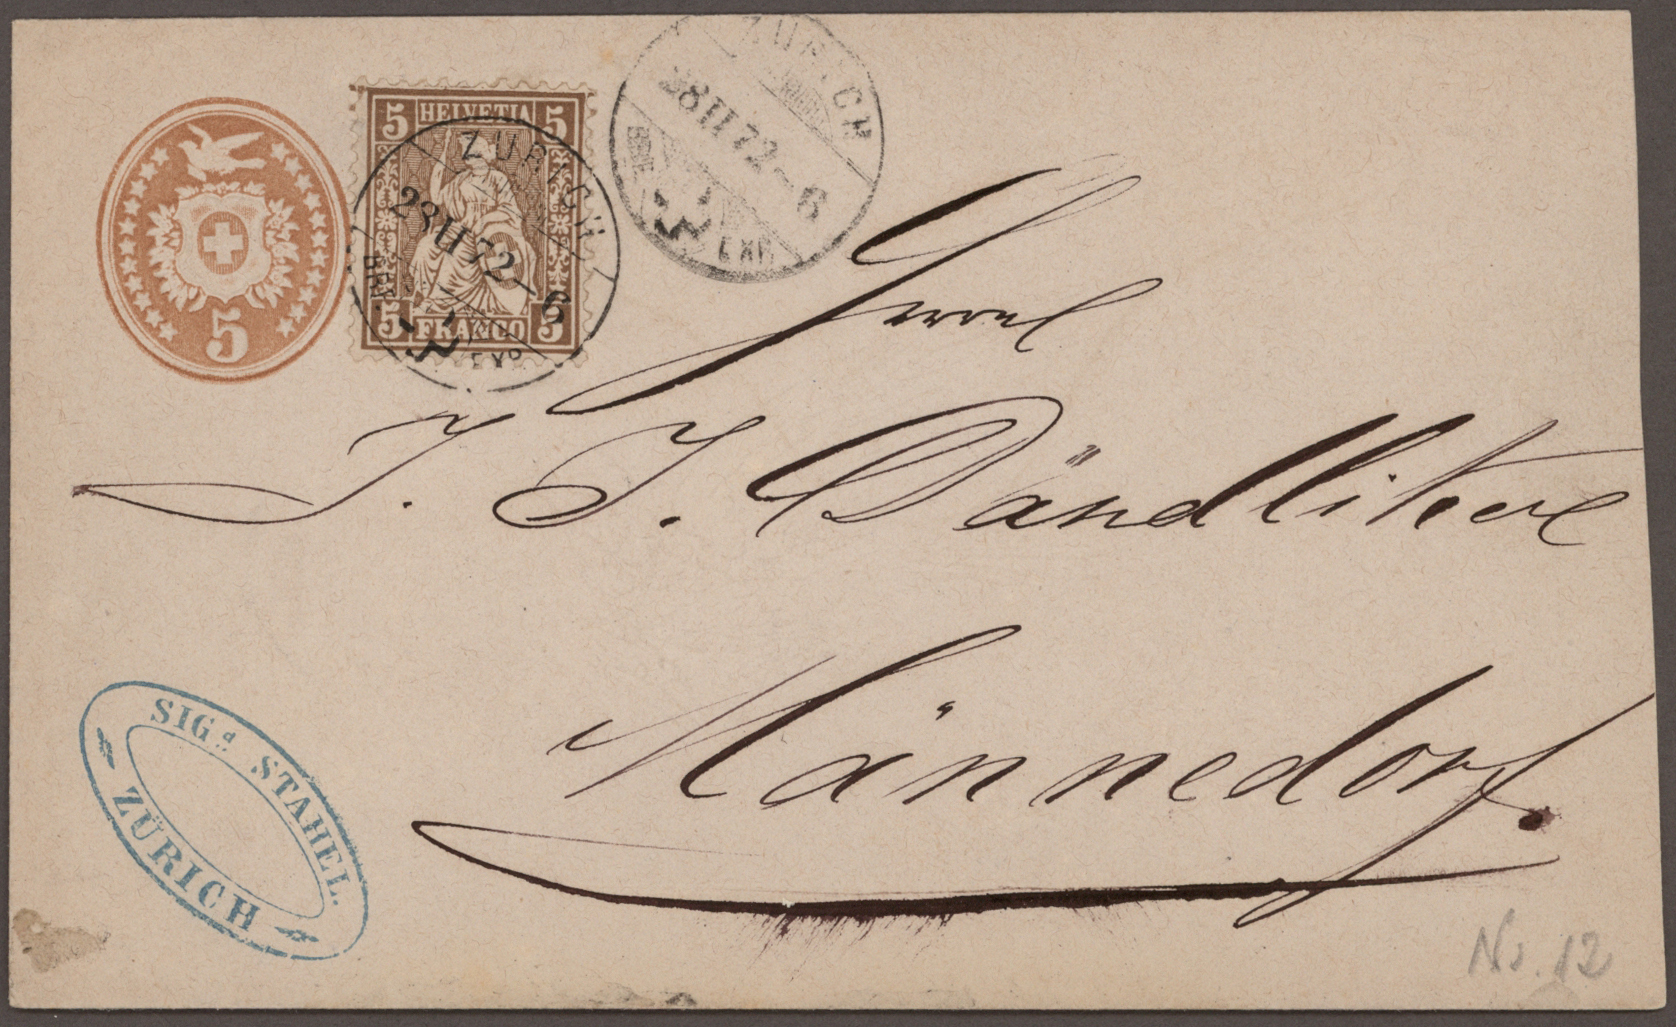 5
5 HELVETIA 5
5 FRANCO 5
ZÜRICH
23 II 72 – 6
BRF. EXP.
ZÜRICH
28 II 72 – 6
BRF. EXP.
Herrn
J. J. Dändliker
Männedorf.
SIGd STAHEL.
ZÜRICH
No. 12